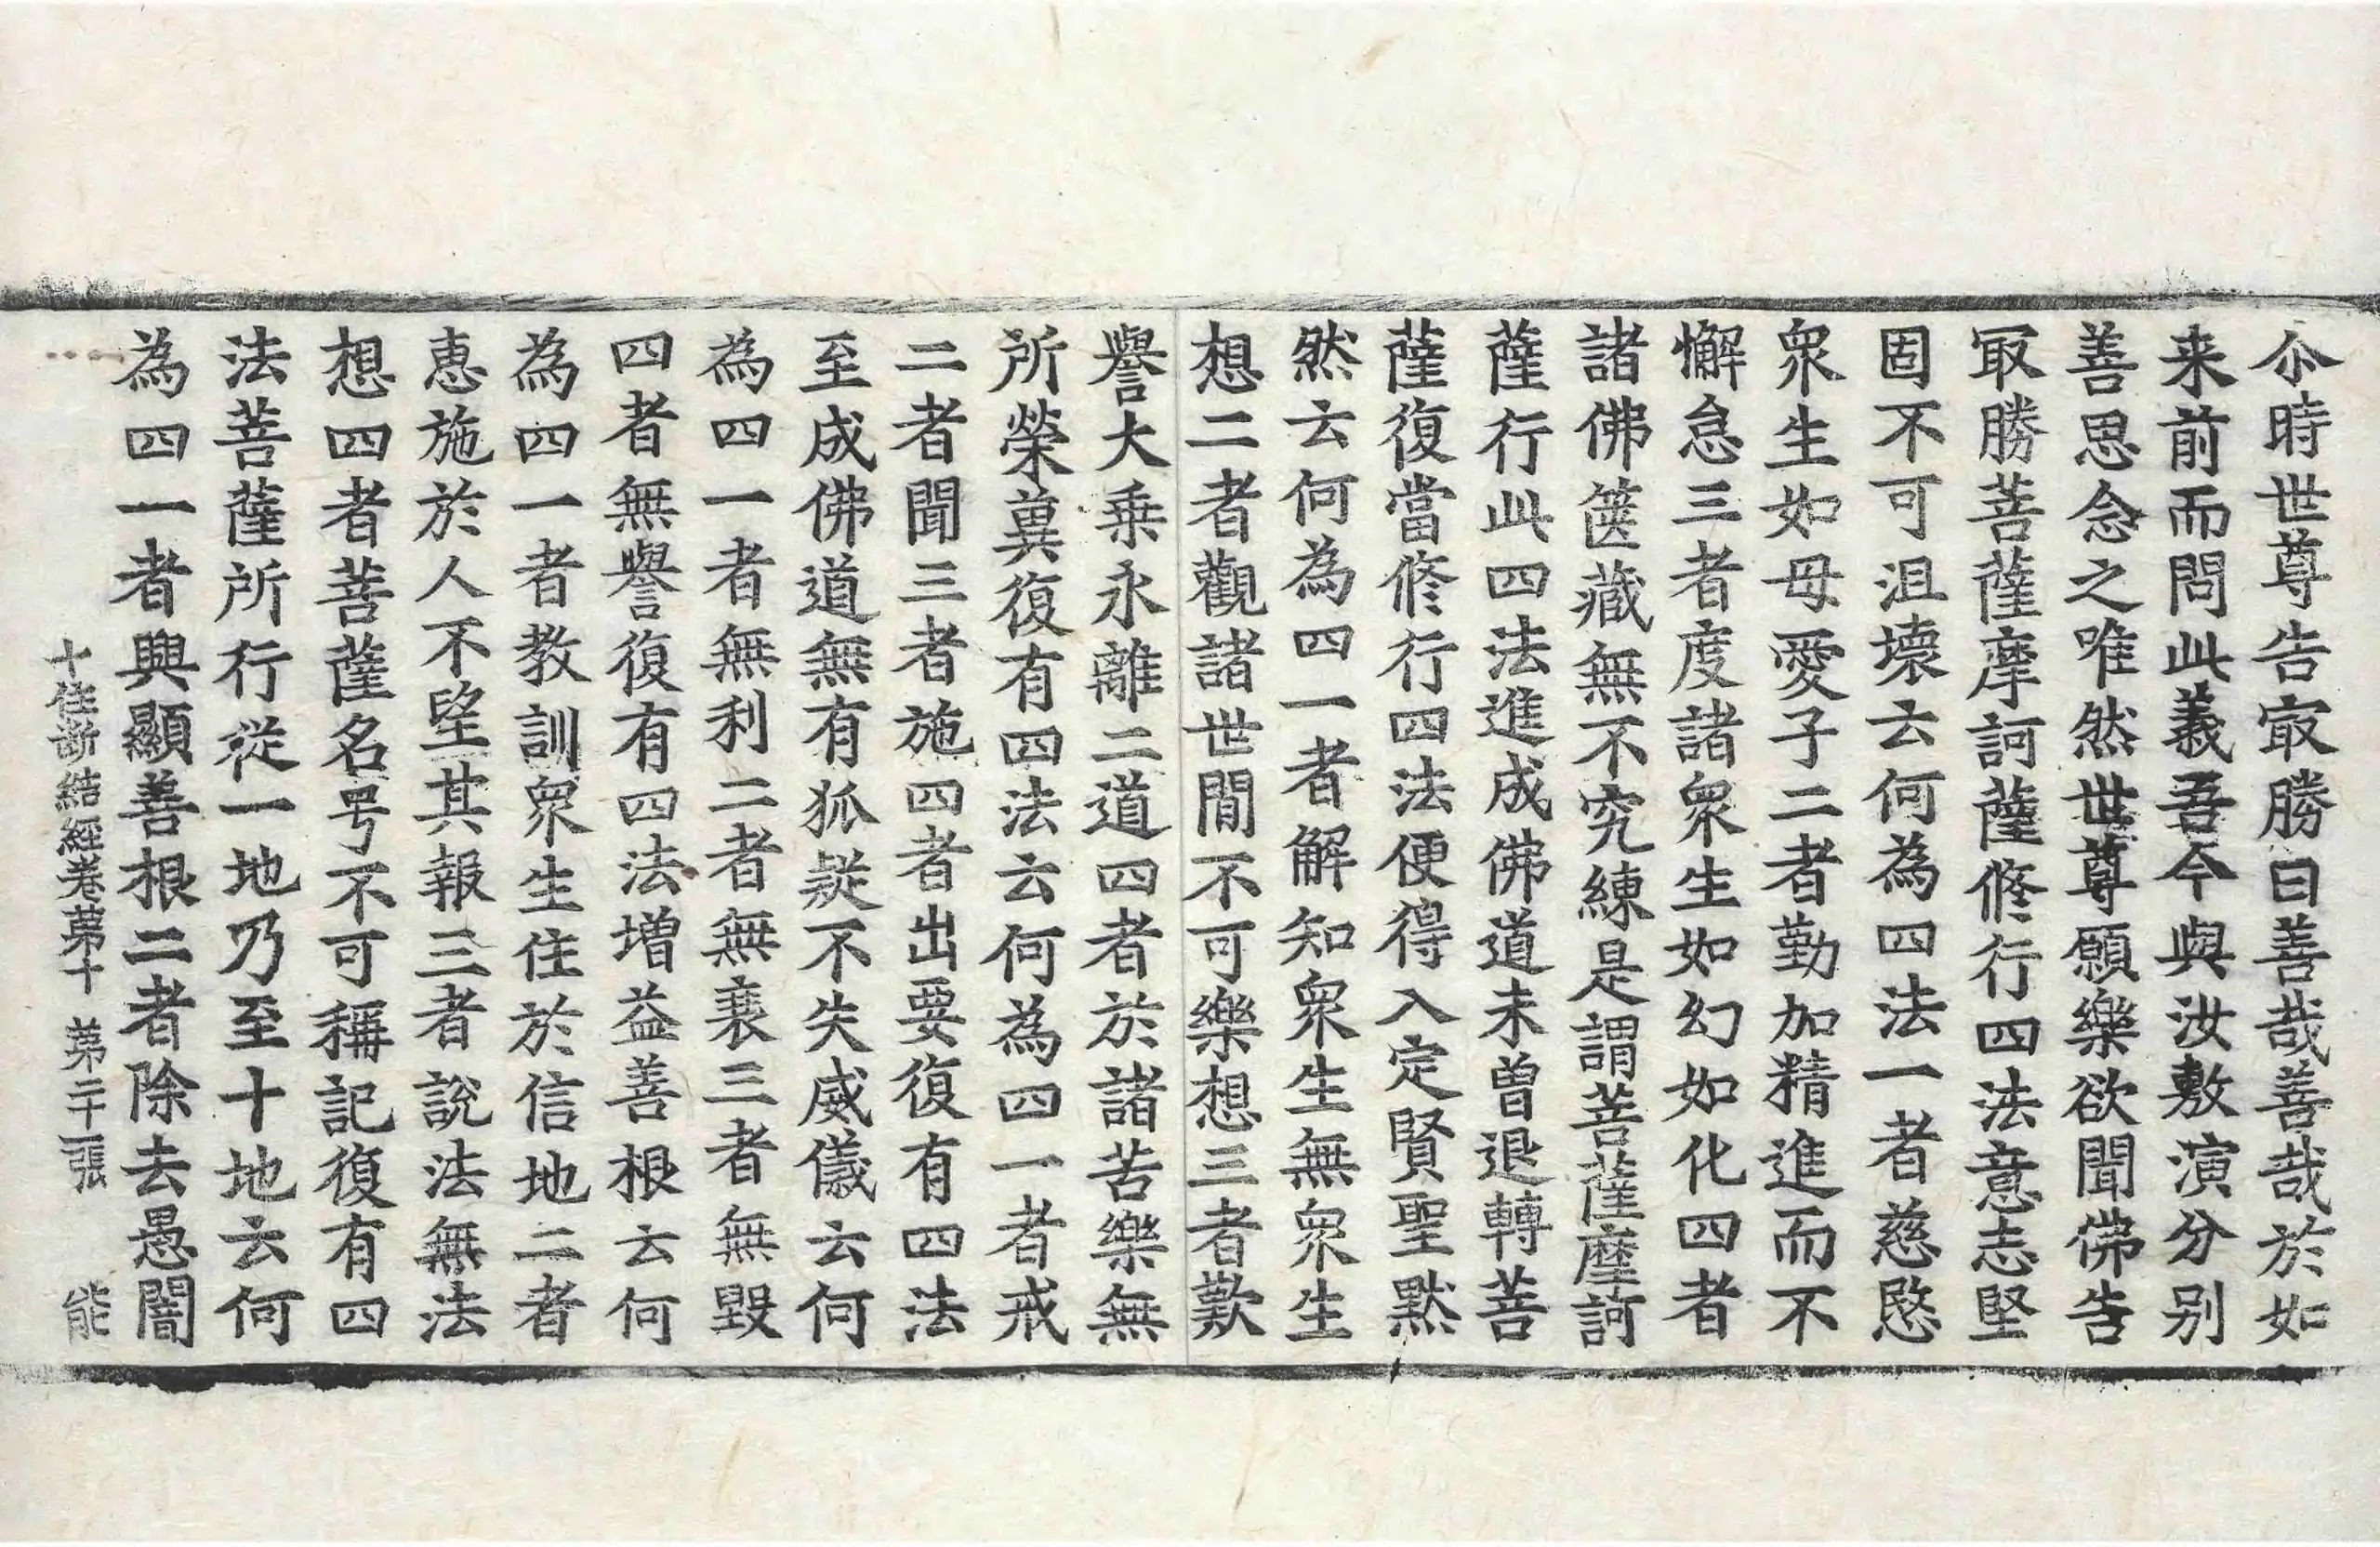 尒時世尊告㝡勝曰善哉善哉於如
来前而問此義吾今與汝敷演分别
善思念之唯然世尊願樂欲聞佛告
㝡勝菩薩摩訶薩修行四法意志堅
固不可沮壞云何為四法一者慈愍
衆生如母愛子二者勤加精進而不
懈怠三者度諸衆生如幻如化四者
諸佛篋藏無不究練是謂菩薩摩訶
薩行此四法進成佛道未曾退轉菩
薩復當修行四法便得入定賢聖黙
然云何為四一者解知衆生無衆生
想二者觀諸世間不可樂想三者歎
譽大乗永離二道四者於諸苦樂無
所榮兾復有四法云何為四一者戒
二者聞三者施四者出要復有四法
至成佛道無有狐疑不失威儀云何
為四一者無利二者無衰三者無毀
四者無譽復有四法增益善根云何
為四一者教訓衆生住於信地二者
惠施於人不望其報三者說法無法
想四者菩薩名号不可稱記復有四
法菩薩所行從一地乃至十地云何
為四一者興顯善根二者除去愚闇
十住斷結經卷第十 第二十一張 能